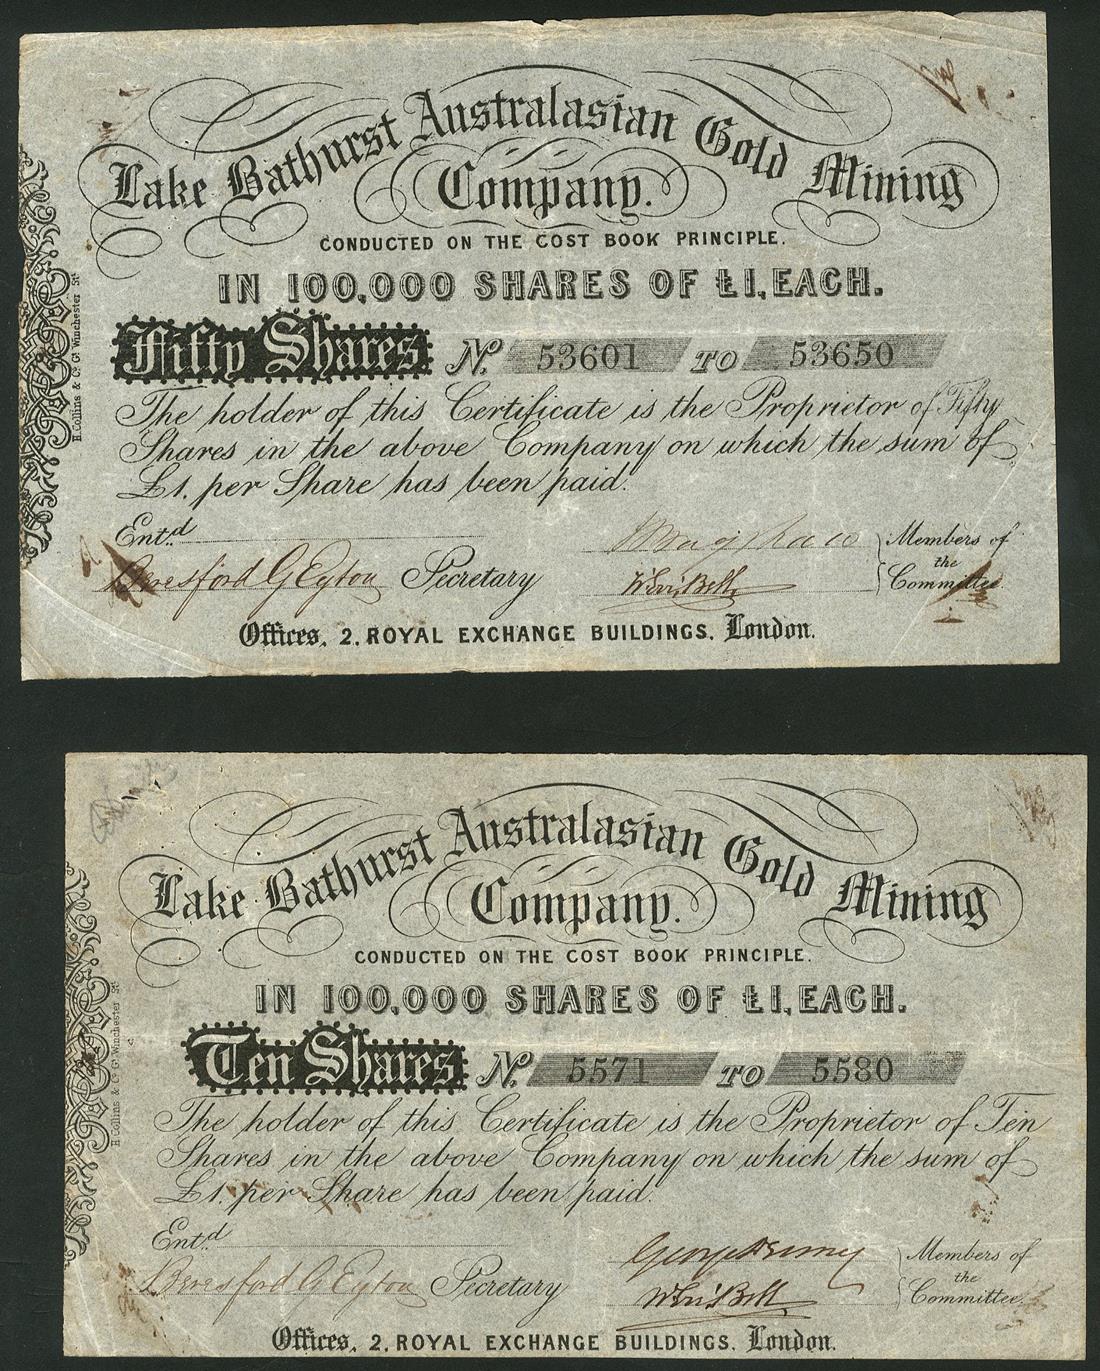 Lake Bathurst Australasian Gold Mining
Company.
CONDUCTED ON THE COST BOOK PRINCIPLE.
IN 100,000 SHARES OF £1, EACH.
Fifty Shares No. 53601 TO 53650
The holder of this Certificate is the Proprietor of Fifty
Shares in the above Company on which the sum of
£1. per Share has been paid.
Entd.
Beresford G Eyton Secretary
Members of
the
Committee
Offices, 2, ROYAL EXCHANGE BUILDINGS, London.
H. Collins & Co. Gt. Winchester St.
Lake Bathurst Australasian Gold Mining
Company.
CONDUCTED ON THE COST BOOK PRINCIPLE.
IN 100,000 SHARES OF £1, EACH.
Ten Shares No. 5571 TO 5580
The holder of this Certificate is the Proprietor of Ten
Shares in the above Company on which the sum of
£1. per Share has been paid.
Entd.
Beresford G Eyton Secretary
Members of
the
Committee
Offices, 2, ROYAL EXCHANGE BUILDINGS, London.
H. Collins & Co. Gt. Winchester St.